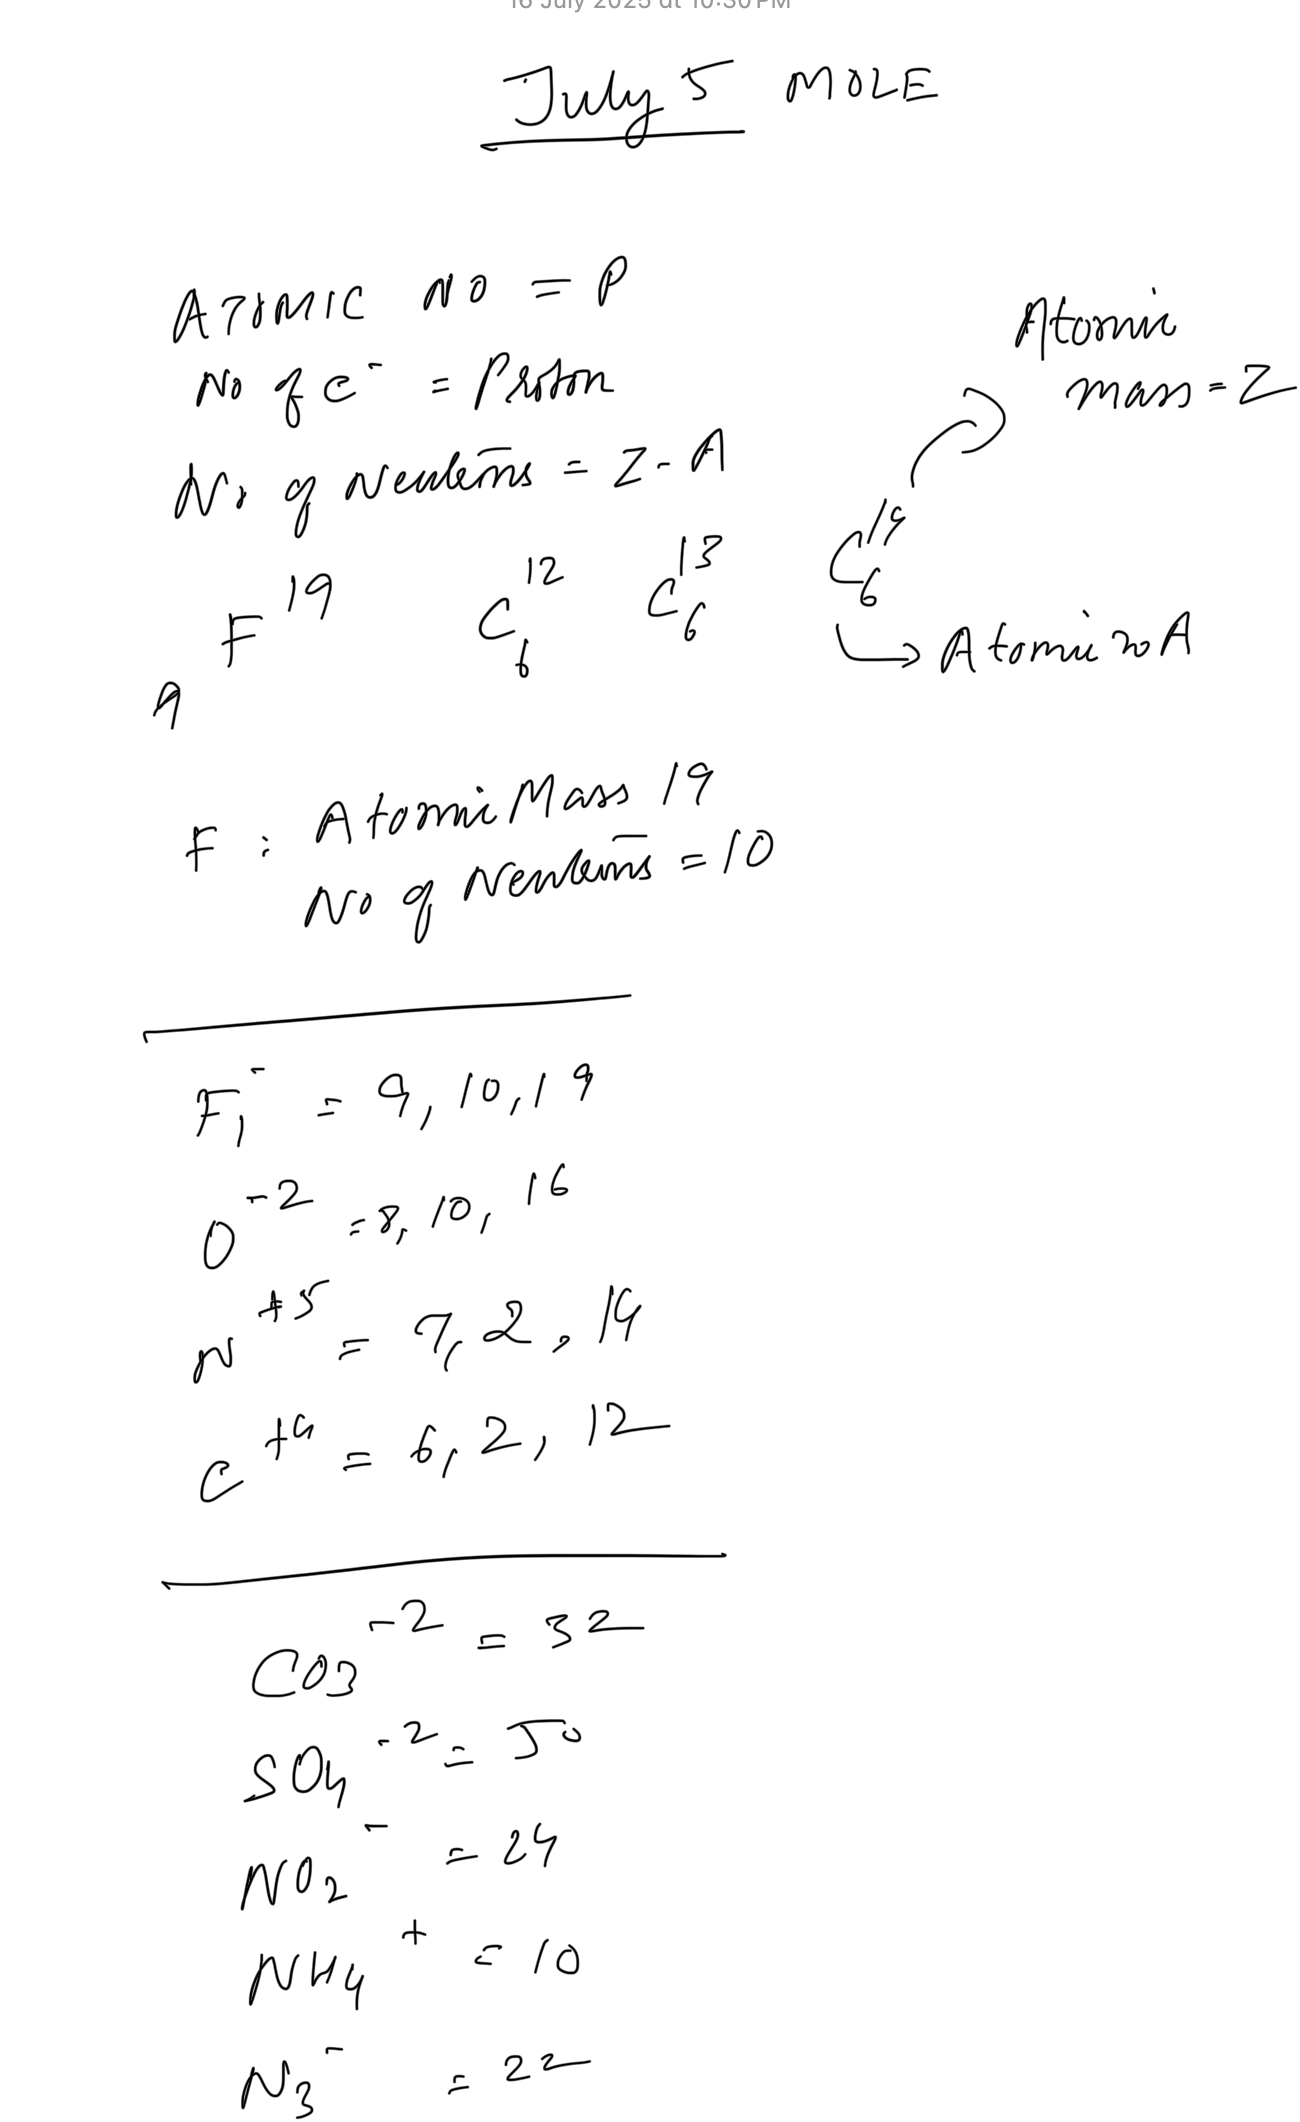 16 July 2025 at 10:30 PM
July 5 MOLE
ATOMIC NO = P
No of e⁻ = Proton
No of Neutrons = Z - A
Atomic
mass = Z
F¹⁹ C₆¹² C₆¹³ C₆¹⁴
9
→ Atomic no A
F : Atomic Mass 19
No of Neutrons = 10
F₁⁻ = 9, 10, 19
O⁻² = 8, 10, 16
N⁺⁵ = 7, 2, 14
C⁺⁴ = 6, 2, 12
CO₃⁻² = 32
SO₄⁻² = 50
NO₂⁻ = 24
NH₄⁺ = 10
N₃⁻ = 22